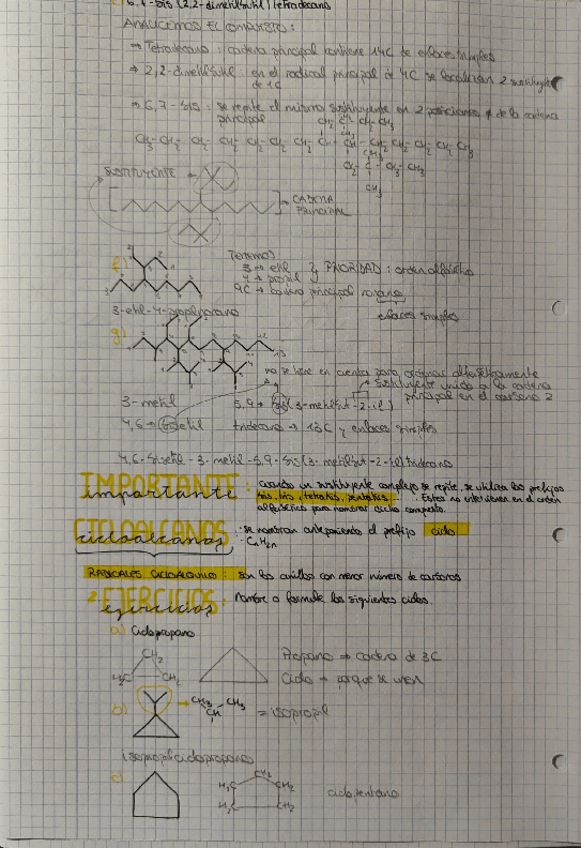 6,7-bis (2,2-dimetilbutil) tetradecano
ANALICEMOS EL COMPUESTO:
→ Tetradecano: cadena principal contiene 14C de enlaces simples
→ 2,2-dimetilbutil: en el radical principal de 4C se localizan 2 sustituyentes
de 1C
→ 6,7-bis: se repite el mismo sustituyente en 2 posiciones ≠ de la cadena
principal
SUSTITUYENTE
CADENA
PRINCIPAL
f)
Tenemos
3 → etil
4 → propil
PRIORIDAD: orden alfabético
9C → cadena principal nonano
enlaces simples
3-etil-4-propilnonano
g)
no se tiene en cuenta para ordenar alfabéticamente
sustituyente unido a la cadena
principal en el carbono 2
3-metil
5,9 → bis (3-metilbut-2-il)
4,6 → bietil
tridecano → 13C y enlaces simples
4,6-bietil-3-metil-5,9-bis(3-metilbut-2-il)tridecano
IMPORTANTE
importante
: cuando un sustituyente complejo se repite, se utiliza los prefijos
bis, tris, tetrakis, pentakis... Estos no intervienen en el orden
alfabético para nombrar dicho compuesto.
CICLOALCANOS
cicloalcanos
· se nombran anteponiendo el prefijo ciclo
· CnH2n
RADICALES CICLOALQUILO: son los anillos con menor número de carbonos
2 EJERCICIOS:
ejercicios
Nombre o formule los siguientes ciclos.
a) Ciclopropano
CH2
H2C
CH2
Propano → cadena de 3C
Ciclo → porque se unen
b)
CH3
CH3
CH
= isopropil
isopropilciclopropano
c)
CH2
H2C
CH2
H2C
CH2
ciclopentano